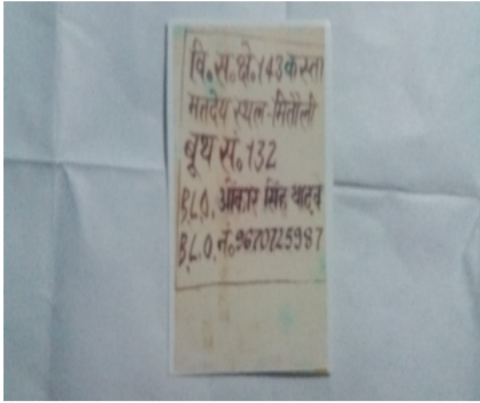 वि.स.क्षे.143 कस्ता
मतदेय स्थल-मितौली
बूथ सं. 132
B.L.O. ओंकार सिंह यादव
B.L.O. नं. 9670725987